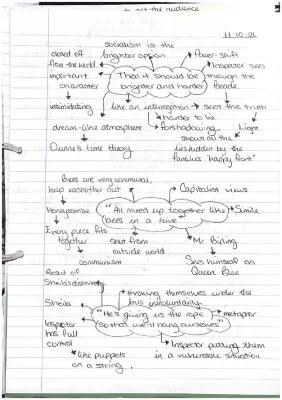 the audience
11-10-21
socialism is the
closed off brighter option Power shift
from the world Inspector sees
important Then it should be through the
character brighter and harder facade
intimidating like an interception sees the truth
harder to lie
dream-like atmosphere Forshadowing Light
shows as the
Dunne's time theory lies hidden by the
families "happy front"
Bees are very communal,
help eachother out Capitalist views
Honeycombe "All mixed up together like Simile
bees in a hive"
Every piece fits
together shut from Mr Birling
outside world
communism Sees himself as
Queen Bee
Result of
Sheila's dismissal throwing themselves under the
bus involuntarily
Sheila "He's giving us the rope metaphor
so that we'll hang ourselves"
Inspector
has full
control Inspector putting them
like puppets in a vulnerable situation
on a string...